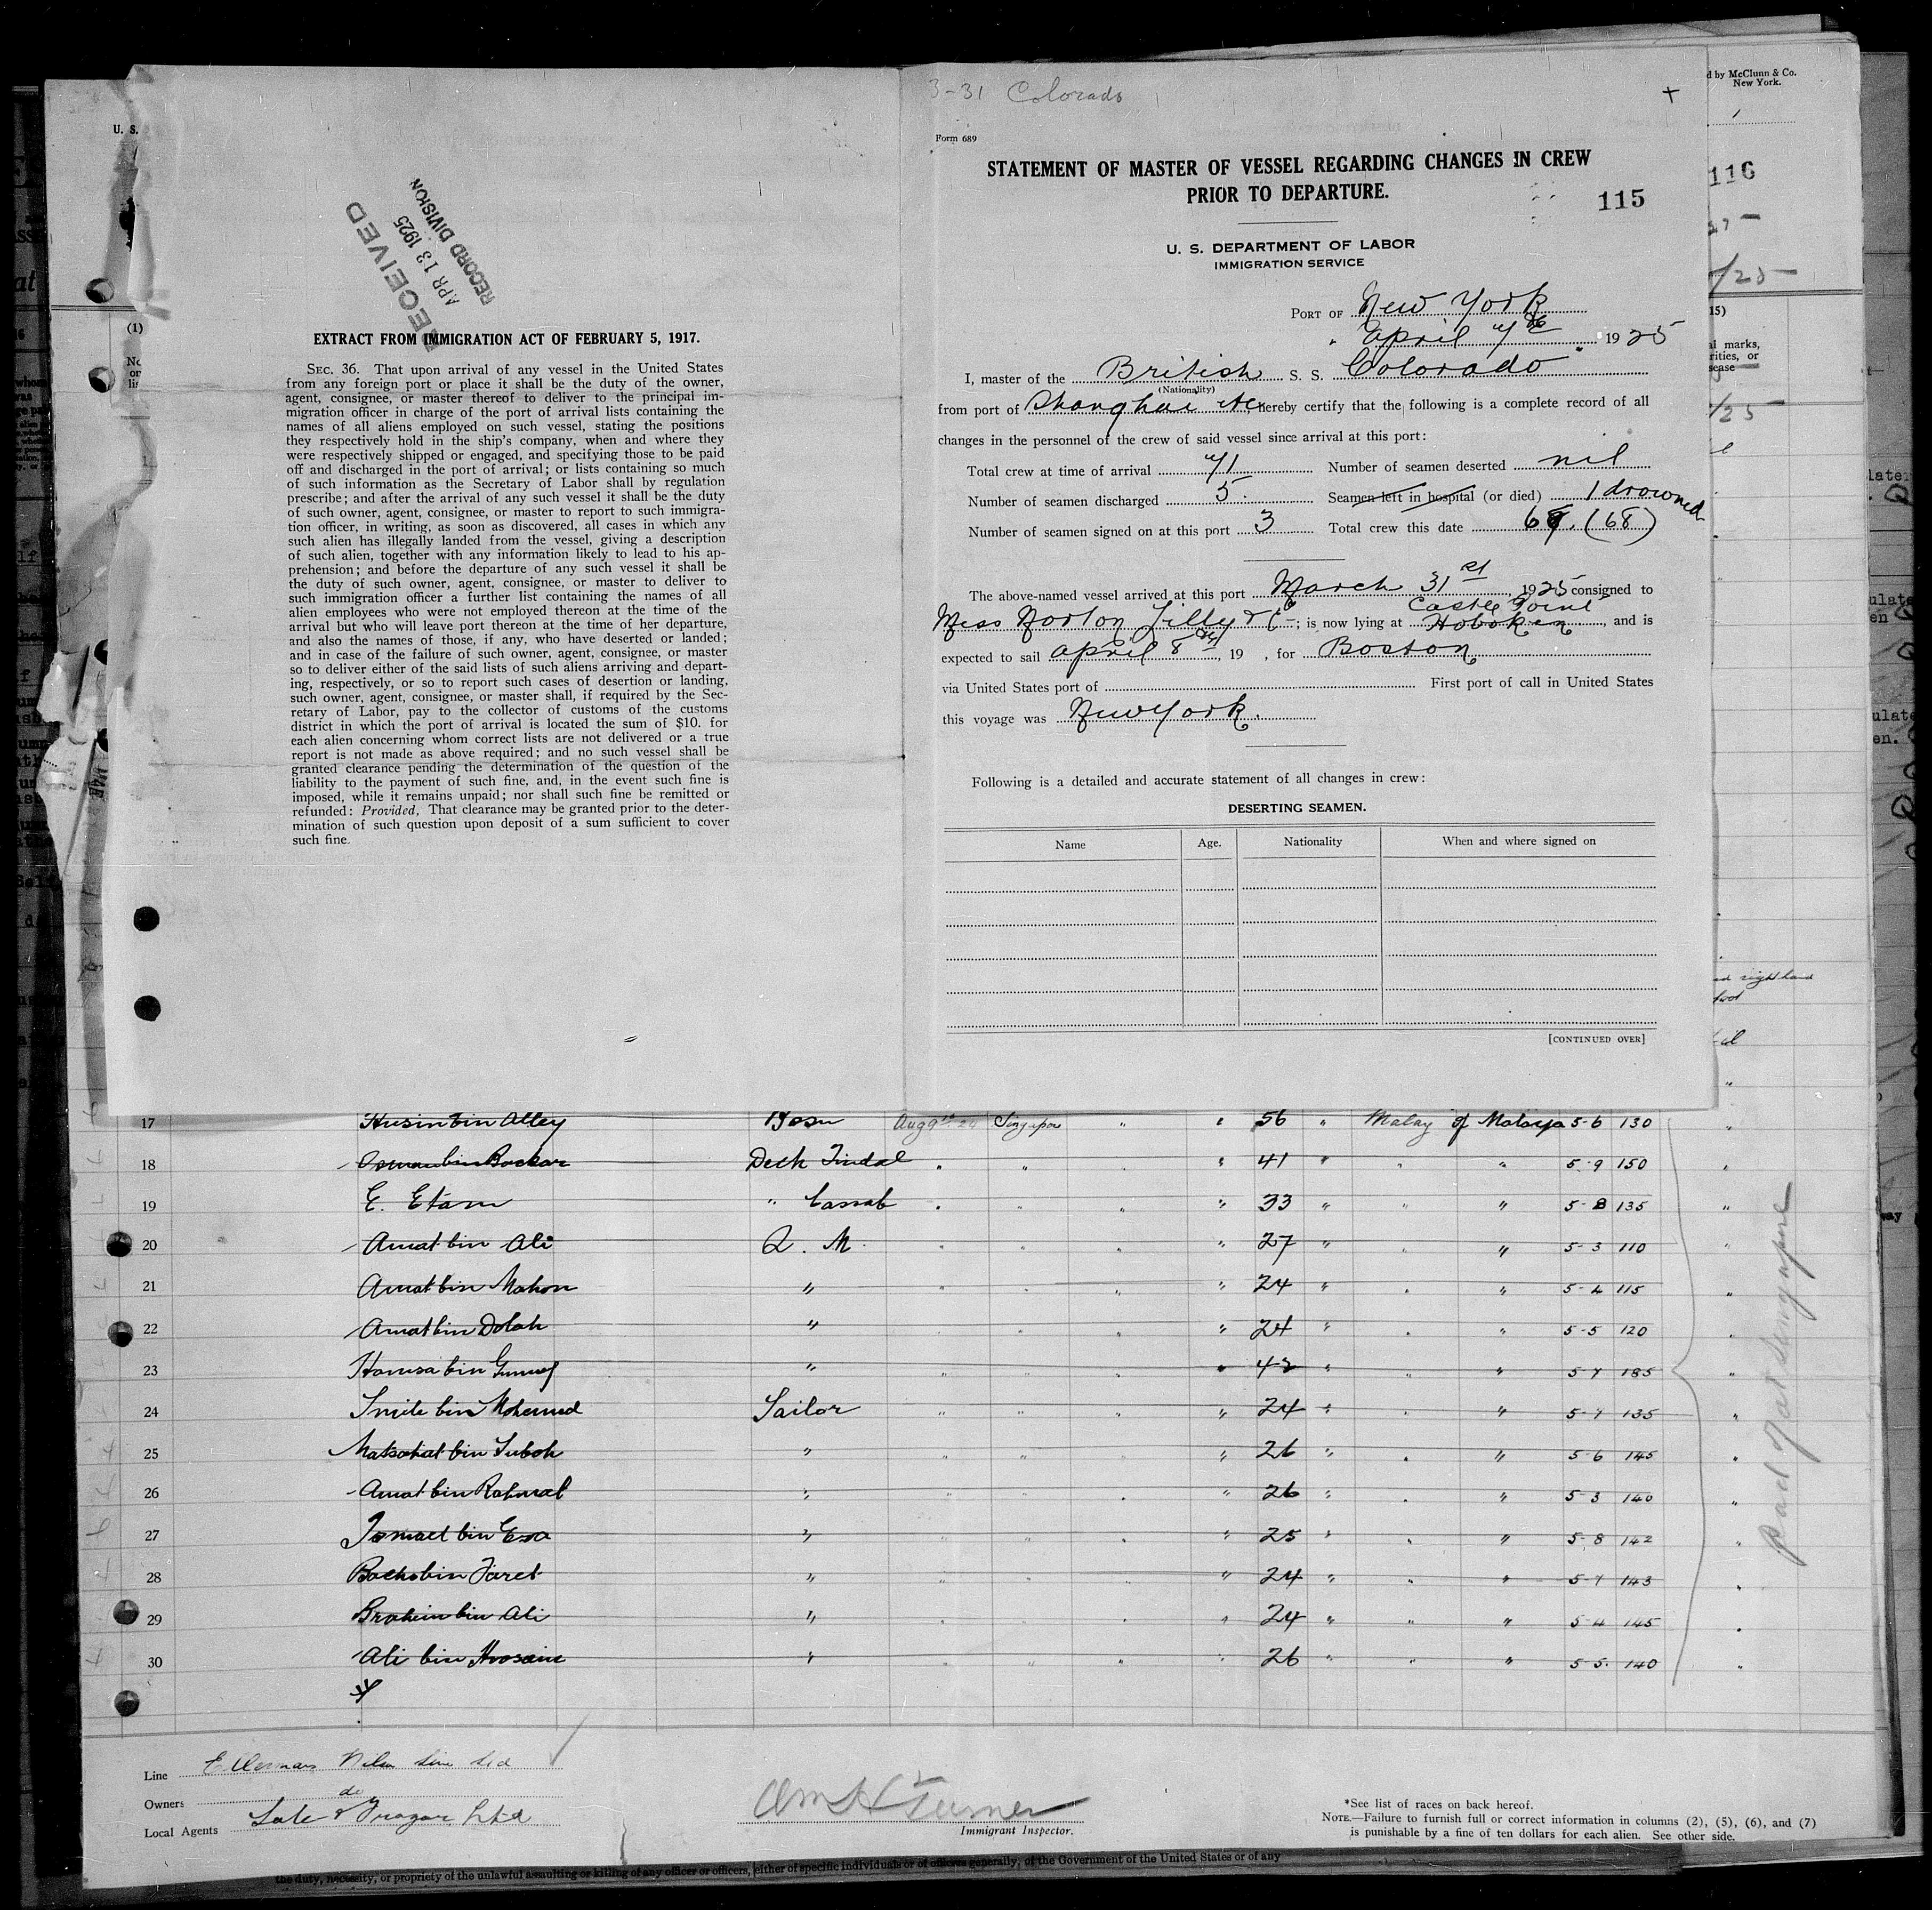 3-31 Colorado
Form 689
STATEMENT OF MASTER OF VESSEL REGARDING CHANGES IN CREW
PRIOR TO DEPARTURE.
115
U. S. DEPARTMENT OF LABOR
IMMIGRATION SERVICE
PORT OF New York
April 7th 1925
I, master of the British S. S. "Colorado"
(Nationality)
from port of Shanghai &c hereby certify that the following is a complete record of all
changes in the personnel of the crew of said vessel since arrival at this port:
Total crew at time of arrival 71 Number of seamen deserted nil
Number of seamen discharged 5. Seamen left in hospital (or died) 1 drowned
Number of seamen signed on at this port 3 Total crew this date (68)
The above-named vessel arrived at this port March 31st, 1925 consigned to
Castle Point
Mess Norton Lilly & Co; is now lying at Hoboken, and is
expected to sail April 8th, 19 , for Boston
via United States port of First port of call in United States
this voyage was New York.
Following is a detailed and accurate statement of all changes in crew:
DESERTING SEAMEN.
Name Age. Nationality When and where signed on
[CONTINUED OVER]
U. S.
RECEIVED
APR 13 1925
RECORD DIVISION
EXTRACT FROM IMMIGRATION ACT OF FEBRUARY 5, 1917.
SEC. 36. That upon arrival of any vessel in the United States
from any foreign port or place it shall be the duty of the owner,
agent, consignee, or master thereof to deliver to the principal im-
migration officer in charge of the port of arrival lists containing the
names of all aliens employed on such vessel, stating the positions
they respectively hold in the ship's company, when and where they
were respectively shipped or engaged, and specifying those to be paid
off and discharged in the port of arrival; or lists containing so much
of such information as the Secretary of Labor shall by regulation
prescribe; and after the arrival of any such vessel it shall be the duty
of such owner, agent, consignee, or master to report to such immigra-
tion officer, in writing, as soon as discovered, all cases in which any
such alien has illegally landed from the vessel, giving a description
of such alien, together with any information likely to lead to his ap-
prehension; and before the departure of any such vessel it shall be
the duty of such owner, agent, consignee, or master to deliver to
such immigration officer a further list containing the names of all
alien employees who were not employed thereon at the time of the
arrival but who will leave port thereon at the time of her departure,
and also the names of those, if any, who have deserted or landed;
and in case of the failure of such owner, agent, consignee, or master
so to deliver either of the said lists of such aliens arriving and depart-
ing, respectively, or so to report such cases of desertion or landing,
such owner, agent, consignee, or master shall, if required by the Sec-
retary of Labor, pay to the collector of customs of the customs
district in which the port of arrival is located the sum of $10. for
each alien concerning whom correct lists are not delivered or a true
report is not made as above required; and no such vessel shall be
granted clearance pending the determination of the question of the
liability to the payment of such fine, and, in the event such fine is
imposed, while it remains unpaid; nor shall such fine be remitted or
refunded: Provided, That clearance may be granted prior to the deter-
mination of such question upon deposit of a sum sufficient to cover
such fine.
d by McClunn & Co.
New York.
116
17 Husin bin Alley Bosn Aug 9th 24 Singapore " " 56 " Malay of Malaya 5-6 130 "
18 Osman bin Bockar Deck Tindal " " " " 41 " " " 5-9 150 "
19 E. Etam " Cassab " " " " 33 " " " 5-8 135 "
20 Amat bin Ali Q. M. " " " " 27 " " " 5-3 110 "
21 Amat bin Mahon " " " " " 24 " " " 5-4 115 "
22 Amat bin Dolah " " " " " 24 " " " 5-5 120 "
23 Hamsa bin " " " " " " " " 5-7 185 "
24 Smile bin Mohamed Sailor " " " " 24 " " " 5-7 135 "
25 Matsohat bin Suboh " " " " " 26 " " " 5-6 145 "
26 Amat bin Rahmat " " " " " 26 " " " 5-3 140 "
27 Ismael bin Esa " " " " " 25 " " " 5-8 142 "
28 bin " " " " " 24 " " " 5-7 143 "
29 Brahim bin Ali " " " " " 24 " " " 5-4 145 "
30 Ali bin Hosain " " " " " 26 " " " 5-5. 140 "
Paid off at Singapore
Line Ellermans Wilson Line Ltd
Owners do
Local Agents Ltd
Wm H Turner
Immigrant Inspector.
*See list of races on back hereof.
NOTE.—Failure to furnish full or correct information in columns (2), (5), (6), and (7)
is punishable by a fine of ten dollars for each alien. See other side.
the duty, necessity, or propriety of the unlawful assaulting or killing of any officer or officers, either of specific individuals or of officers generally, of the Government of the United States or of any